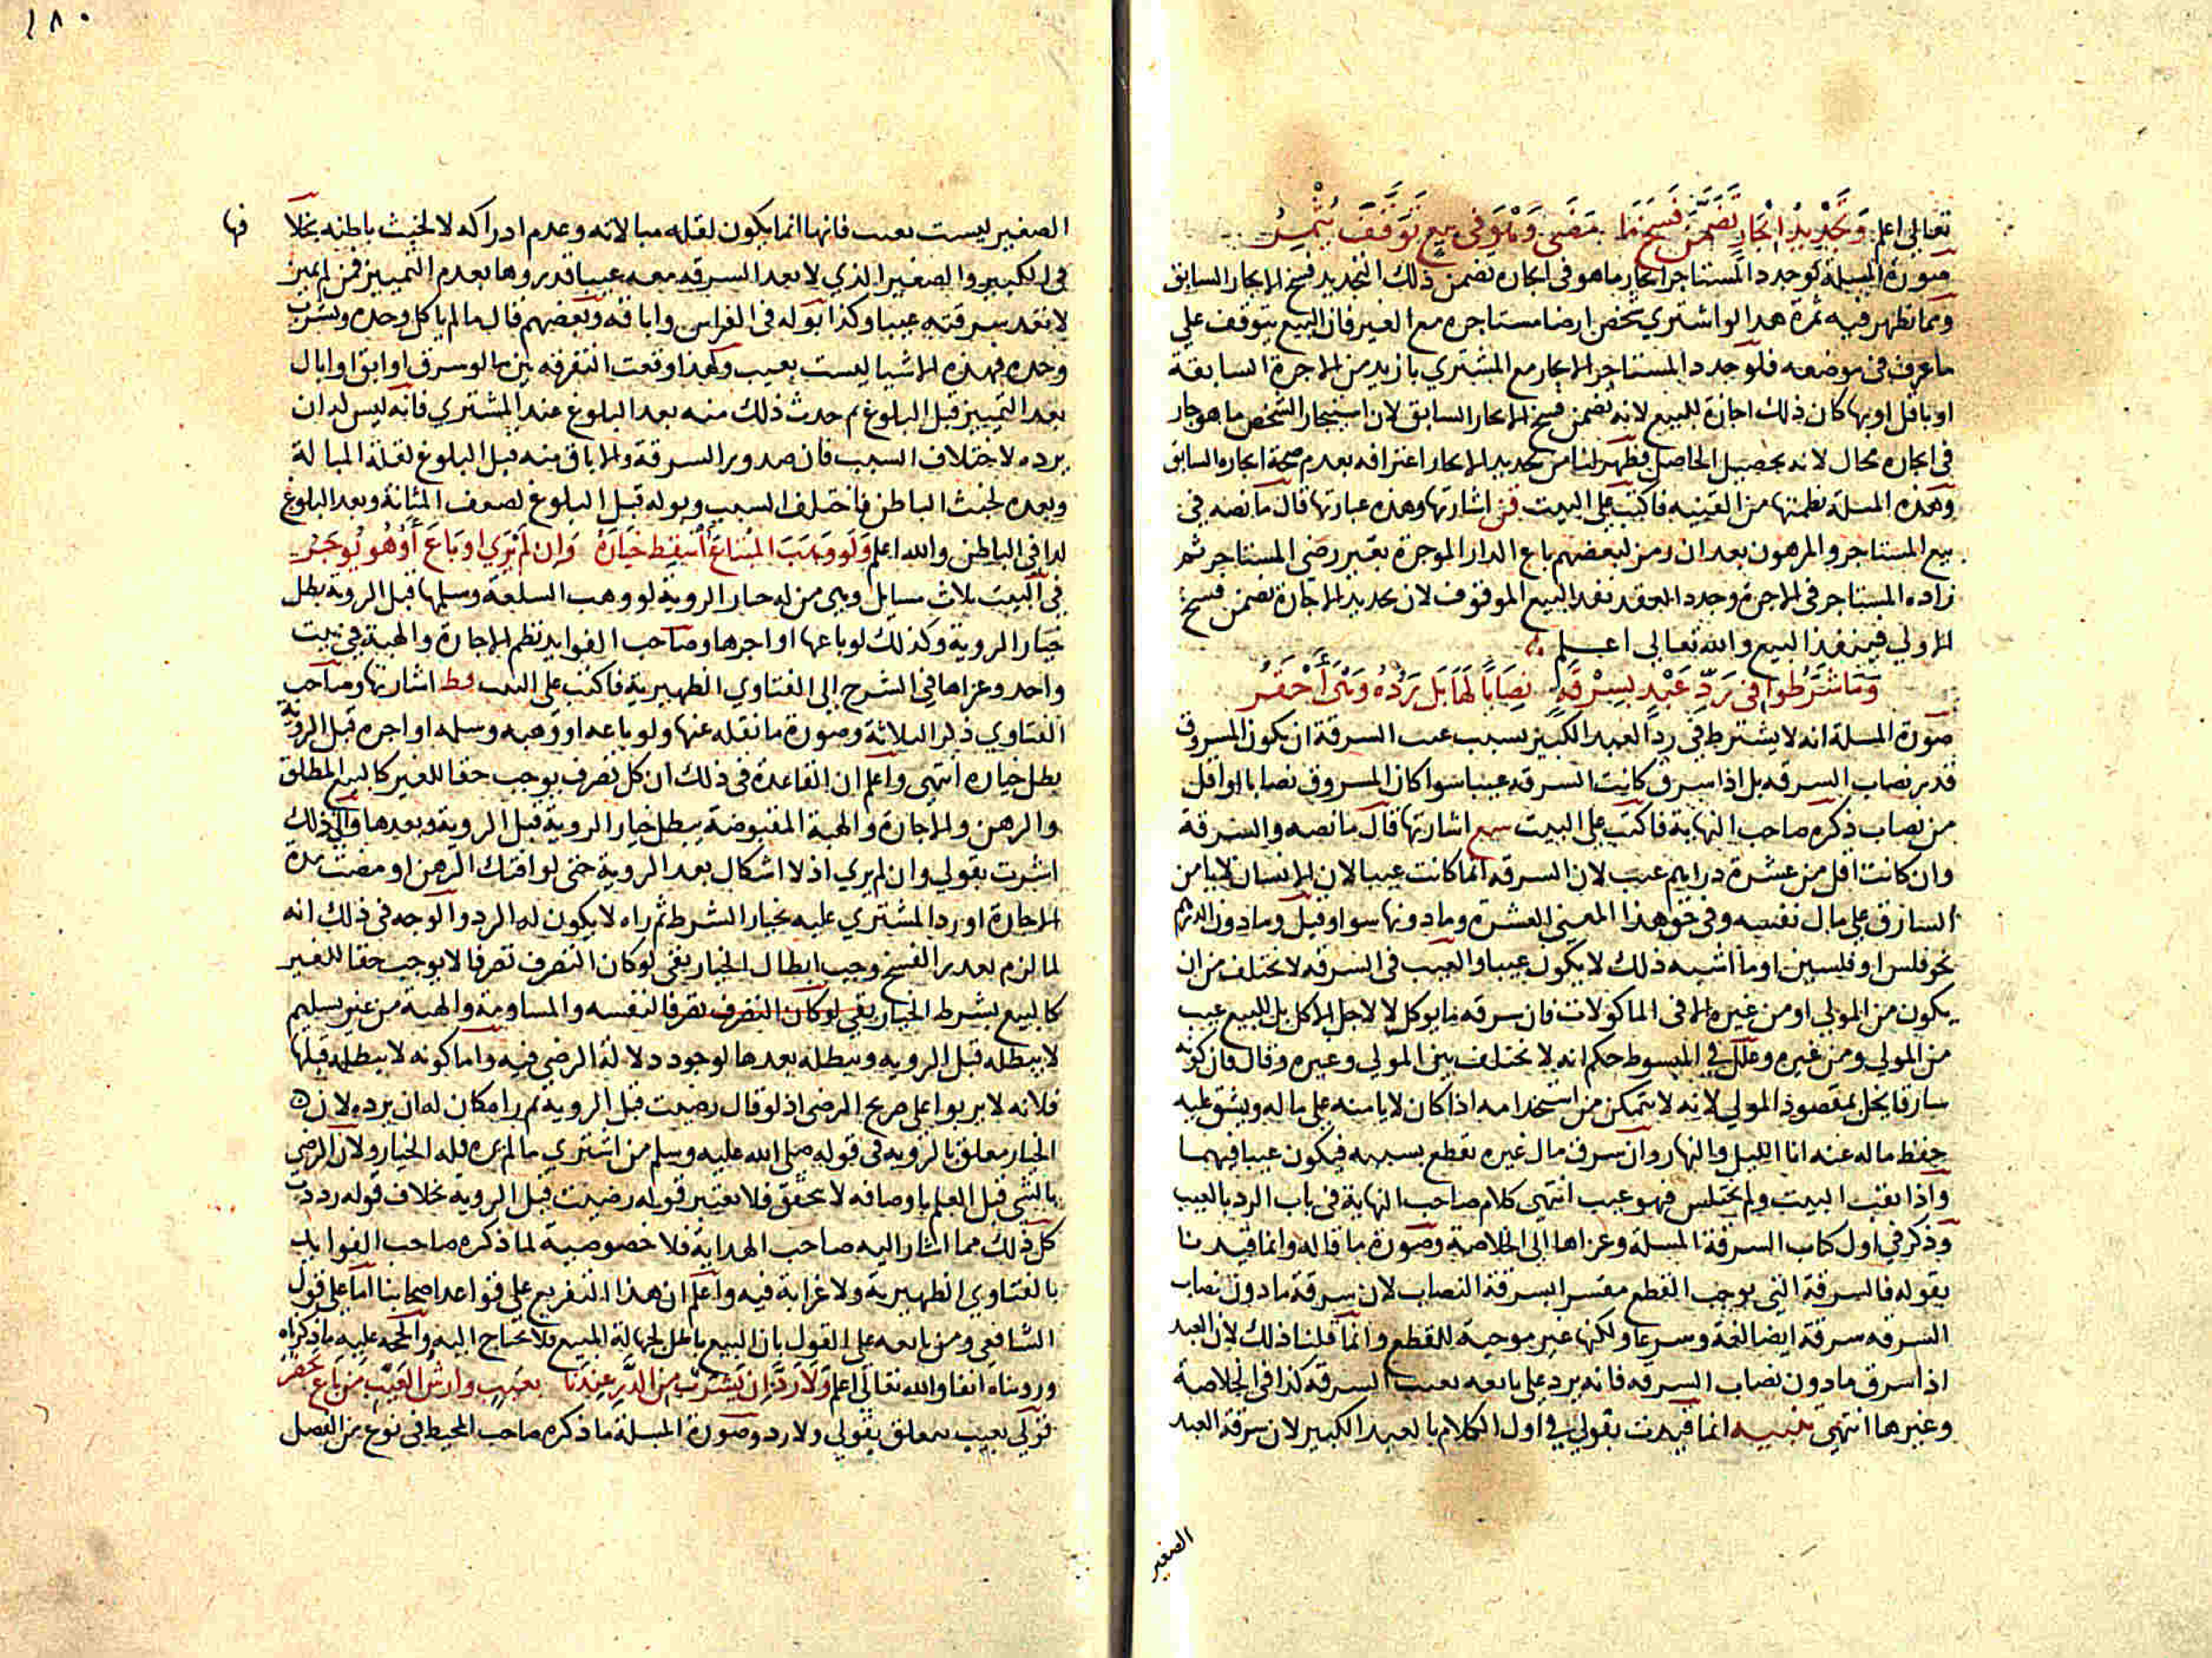 تعالي اعلم وتجديد ايجار تضمن فسخ ما مضى وفي بيع توقف يثمر
صورة المسلة لو جدد المستاجر ايجار ما هو في ايجاره تضمن ذلك التجديد فسخ الايجار السابق
ومما تظهر فيه ثمرة هذا لو اشتري شخص ارضا مستاجره مع الغير فان البيع يتوقف علي
ما عرف في موضعه فلو جدد المستاجر الايجار مع المشتري بازيد من الاجرة السابقة
او باقل او بها كان ذلك اجازة للبيع لانه تضمن فسخ الايجار السابق لان استيجار الشخص ما هو جار
في ايجاره محال لانه تحصيل الحاصل فظهر لنا من تجديد الايجار اعترافه بعدم صحة ايجاره السابق
وهذه المسلة نظمتها من القنيه فاكتب علي البيت قن اشارتها وهذه عبارتها قال ما نصه في
بيع المستاجر والمرهون بعد ان رمز لبعضهم باع الدار الموجرة بغير رضي المستاجر ثم
زاده المستاجر في الاجرة وجدد العقد نفذ البيع الموقوف لان تجديد الاجارة تضمن فسخ
الاولي فينفذ البيع والله تعالى اعلم
وما شرطوا في رد عبد بسرقة نصابا لها بل رده وهى احقر
صورة المسلة انه لا يشترط في رد العبد الكبير بسبب عيب السرقة ان يكون المسروق
قدر نصاب السرقه بل اذا سرق كانت السرقه عيبا سوا كان المسروق نصابا او اقل
من نصاب ذكره صاحب النهاية فاكتب علي البيت اشارتها قال ما نصه والسرقة
وان كانت اقل من عشرة دراهم عيب لان السرقه انما كانت عيبا لان الانسان لا يامن
السارق علي مال نفسه وفي حق هذا المعني العشرة وما دونها سوا وقيل وما دون الدرهم
نحو فلس او فلسين او ما اشبه ذلك لا يكون عيبا والعيب في السرقه لا يختلف من ان
يكون من المولي او من غيره الا في الماكولات فان سرقه ما يوكل لا لاجل الاكل بل للبيع عيب
من المولي ومن غيره وعلل في المبسوط حكم انه لا يختلف بين المولي وغيره وقال فان كونه
سارقا يخل بمقصود المولي لانه لا يتمكن من استخدامه اذا كان لا يامنه علي ماله ويشق عليه
حفظ ماله عنه انا الليل والنهار وان سرق مال غيره تقطع بسببه فيكون عيبا فيهما
واذا نقب البيت ولم يختلس فهو عيب انتهى كلام صاحب النهاية في باب الرد بالعيب
وذكر في اول كتاب السرقة المسلة وعزاها الى الخلاصة وصورة ما قاله وانما قيدنا
بقوله فالسرقة التي توجب القطع مفسر السرقة النصاب لان سرقة ما دون نصاب
السرقه سرقة ايضا لغة وشرعا ولكنها غير موجبة للقطع وانما قلنا ذلك لان العبد
اذا سرق ما دون نصاب السرقه فانه يرد علي بايعه بعيب السرقه كذا في الخلاصة
وغيرها انتهى تنبيه انما قيدت بقولي في اول الكلام بالعبد الكبير لان سرقة العبد
الصغير
١٨٠
الصغير ليست بعيب فانها انما يكون لقله مبالاته وعدم ادراكه لا لخبث باطنه بخلا فها
في الكبير والصغير الذي لا يعد السرقه معه عيبا قدروها بعدم التمييز فمن لم يميز
لا تعد سرقته عيبا وكذا بوله في الفراش واباقه وبعضهم قال ما لم ياكل وحده ويشرب
وحده فهذه الاشيا ليست بعيب ولهذا وقعت التفرقه بين ما لو سرق او ابق او بال
بعد التمييز قبل البلوغ ثم حدث ذلك منه بعد البلوغ عند المشتري فانه ليس له ان
يرده لاختلاف السبب فان صدور السرقة والاباق منه قبل البلوغ لقلة المبالة
وبعده لخبث الباطن فاختلف السبب وبوله قبل البلوغ لضعف المثانة وبعد البلوغ
لدا في الباطن والله اعلم ولو وهب المبتاع اسقط خياره وان لم يري او باع او هو يوجر
في البيت ثلاث مسايل وهي من له خيار الروية لو وهب السلعة وسلمها قبل الروية بطل
خيار الروية وكذلك لو باعها او اجرها وصاحب الفوايد نظم الاجارة والهبة في بيت
واحد وعزاها في الشرح الى الفتاوي الظهيرية فاكتب علي البيت فظ اشارتها وصاحب
الفتاوي ذكر الثلاثة وصورة ما نقله عنها ولو باعه او وهبه وسلمه او اجره قبل الروية
بطل خياره انتهى واعلم ان القاعدة في ذلك ان كل تصرف يوجب حقا للغير كالبيع المطلق
والرهن والاجارة والهبة المقبوضة يبطل خيار الروية قبل الروية وبعدها والي ذلك
اشرت بقولي وان لم يري اذ لا اشكال بعد الروية حتى لو افتك الرهن او مضت مدة
الاجارة او رد المشتري عليه بخيار الشرط ثم راه لا يكون له الرد والوجه في ذلك انه
لما لزم تعذر الفسخ وجب ابطال الخيار بقي لو كان التصرف تصرفا لا يوجب حقا للغير
كالبيع بشرط الخيار بقي لو كان التصرف تصرفا لنفسه والمساومة والهبة من غير تسليم
لا يبطله قبل الرويه ويبطله بعدها لوجود دلالة الرضي فيه واما كونه لا يبطله قبلها
فلانه لا يربوا علي صريح الرضي اذ لو قال رضيت قبل الرويه ثم راه كان له ان يرده لان
الخيار معلق بالرويه في قوله صلى الله عليه وسلم من اشتري ما لم يره فله الخيار ولان الرضي
بالشي قبل العلم باوصافه لا يتحقق فلا يعتبر قوله رضيت قبل الروية بخلاف قوله رددت
كل ذلك مما اشار اليه صاحب الهداية فلا خصوصية لما ذكره صاحب الفوايد
بالفتاوي الظهيرية ولا غرابة فيه واعلم ان هذا التفريع علي قواعد اصحابنا اما علي قول
الشافعي ومن تابعه علي القول بان البيع باطل لجهالة المبيع فلا يحتاج اليه والحجه عليه ما ذكرناه
ورويناه انفا والله تعالى اعلم ولا رد ان يشرب من الدر عندنا بعيب وارش العيب من باع يحقر
قولي بعيب معلق بقولي ولا رد وصورة المسلة ما ذكره صاحب المحيط في نوع من الفصل